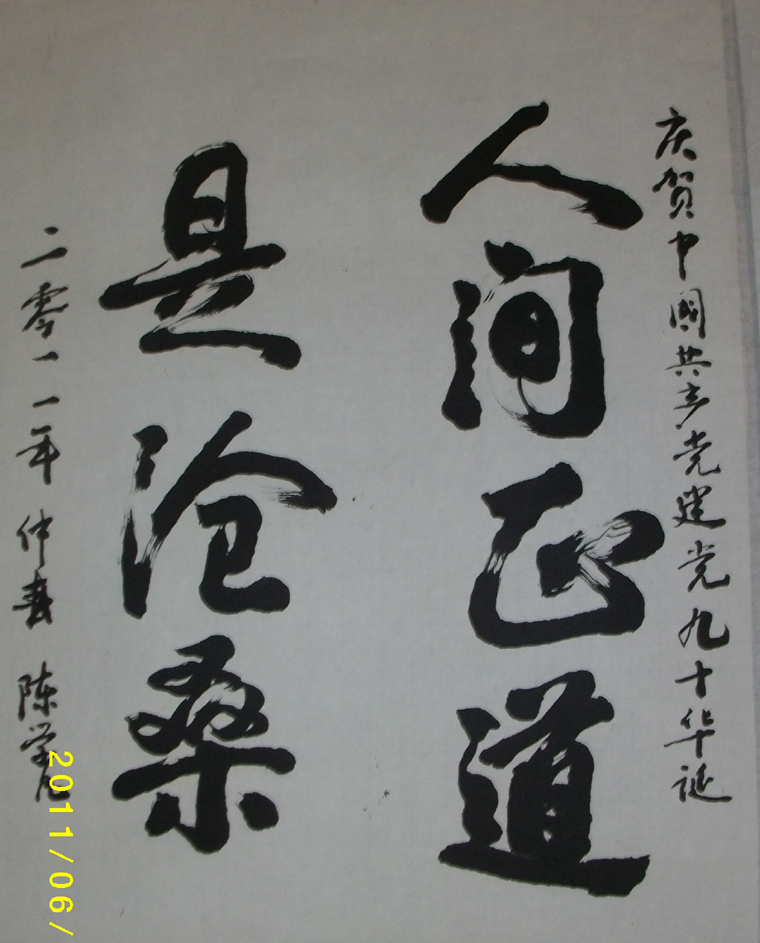 庆贺中國共产党建党九十华诞
人间正道
是沧桑
二零一一年 仲春 陈学
2011/06/